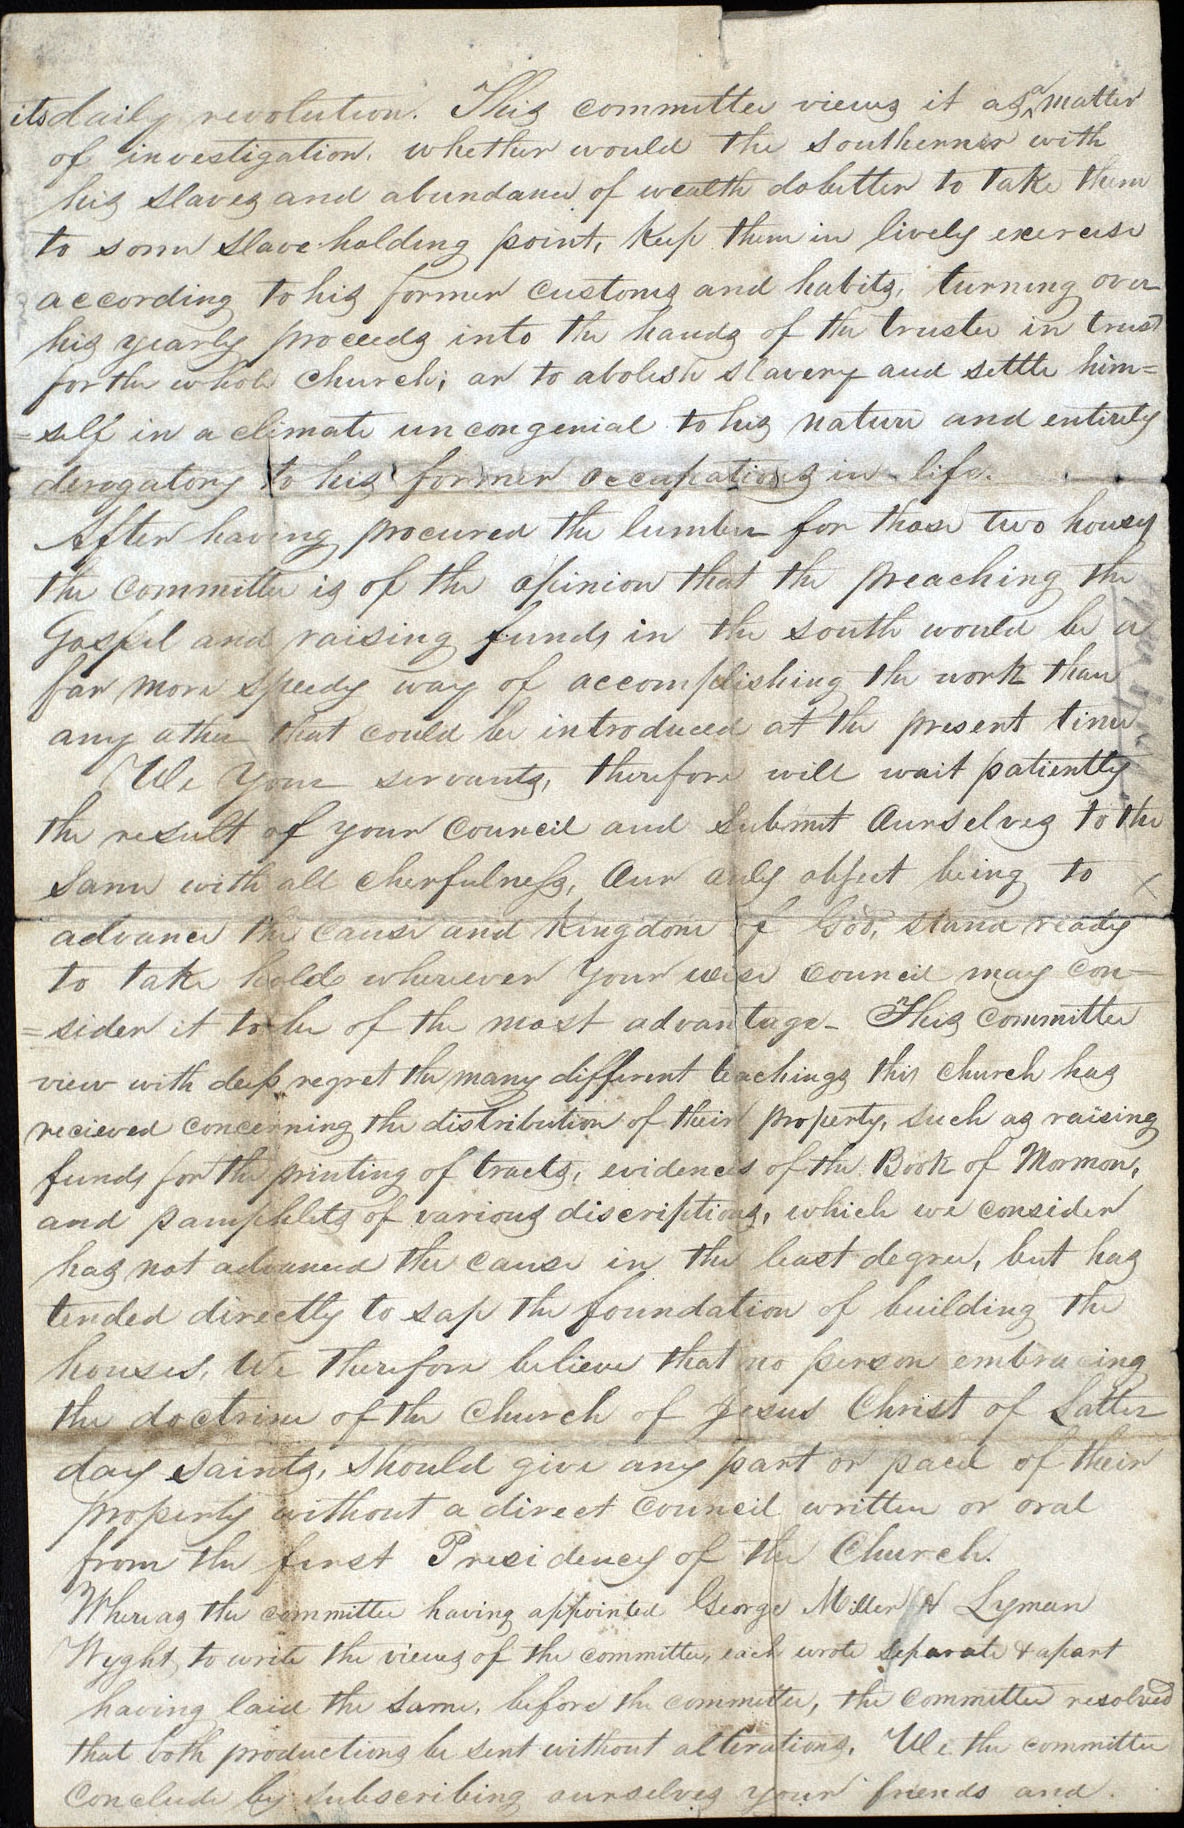 its daily revolution. This committee views it as a matter
of investigation, whether would the southerner with
his slaves and abundance of wealth do better to take them
to some slave holding point, keep them in lively exercise
according to his former customs and habits, turning over
his yearly proceeds into the hands of the trustee in trust
for the whole church; or to abolish slavery and settle him=
=self in a climate uncongenial to his nature and entirely
derogatory to his former occupations in life.
After having procured the lumber for those two houses
the committee is of the opinion that the preaching the
Gospel and raising funds in the south would be a
far more speedy way of accomplishing the work than
any other that could be introduced at the present time
We Your servants, therefore will wait patiently
the result of your council and submit ourselves to the
same with all cherfulness, Our only object being to
advance the cause and kingdom of God, stand ready
to take hold wherever your wise council may con=
=sider it to be of the most advantage- This committee
view with deep regret the many different teachings this church has
recieved concerning the distribution of their property, such as raising
funds for the printing of tracts, evidences of the Book of Mormon,
and pamphlets of various discriptions, which we consider
has not advanced the cause in the least degree, but has
tended directly to sap the foundation of building the
houses, We therefore believe that no person embracing
the doctrine of the church of Jesus Christ of Latter
day saints, should give any part or pacel of their
property without a direct council written or oral
from the first Presidency of the Church.
Whereas the committee having appointed George Miller & Lyman
Wyght to write the views of the committee, each wrote separate & apart
having laid the same, before the committee, the committee resolved
that both productions be sent without alterations. We the committee
conclude by subscribing ourselves your friends and